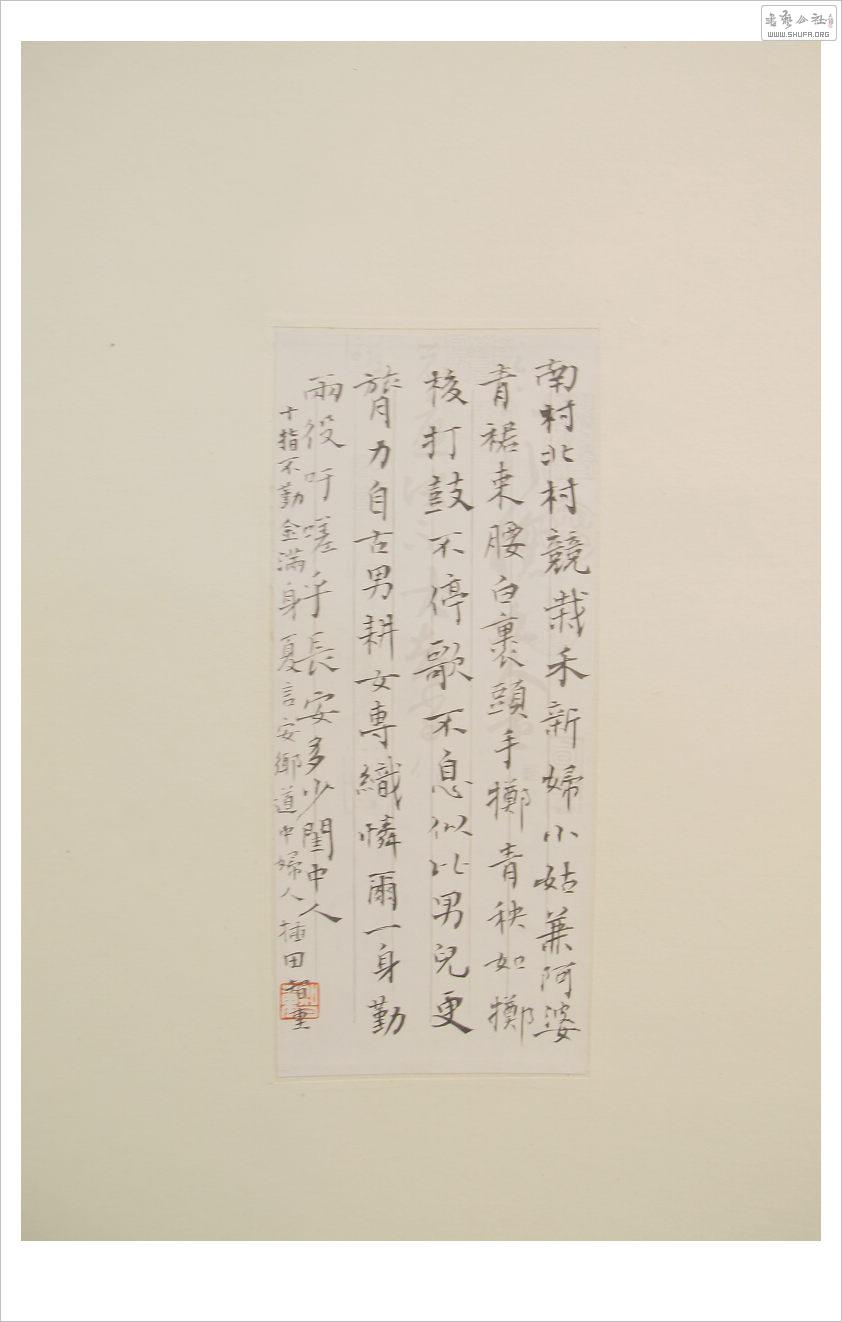 南村北村競栽禾新婦小姑兼阿婆
青裾束腰白裹頭手擲青秧如擲
梭打鼓不停歌不息似比男兒更
膂力自古男耕女專織憐爾一身勤
兩役吁嗟乎長安多少閨中人
十指不勤金滿身夏言安鄉道中婦人插田智重
WWW.SHUFA.ORG